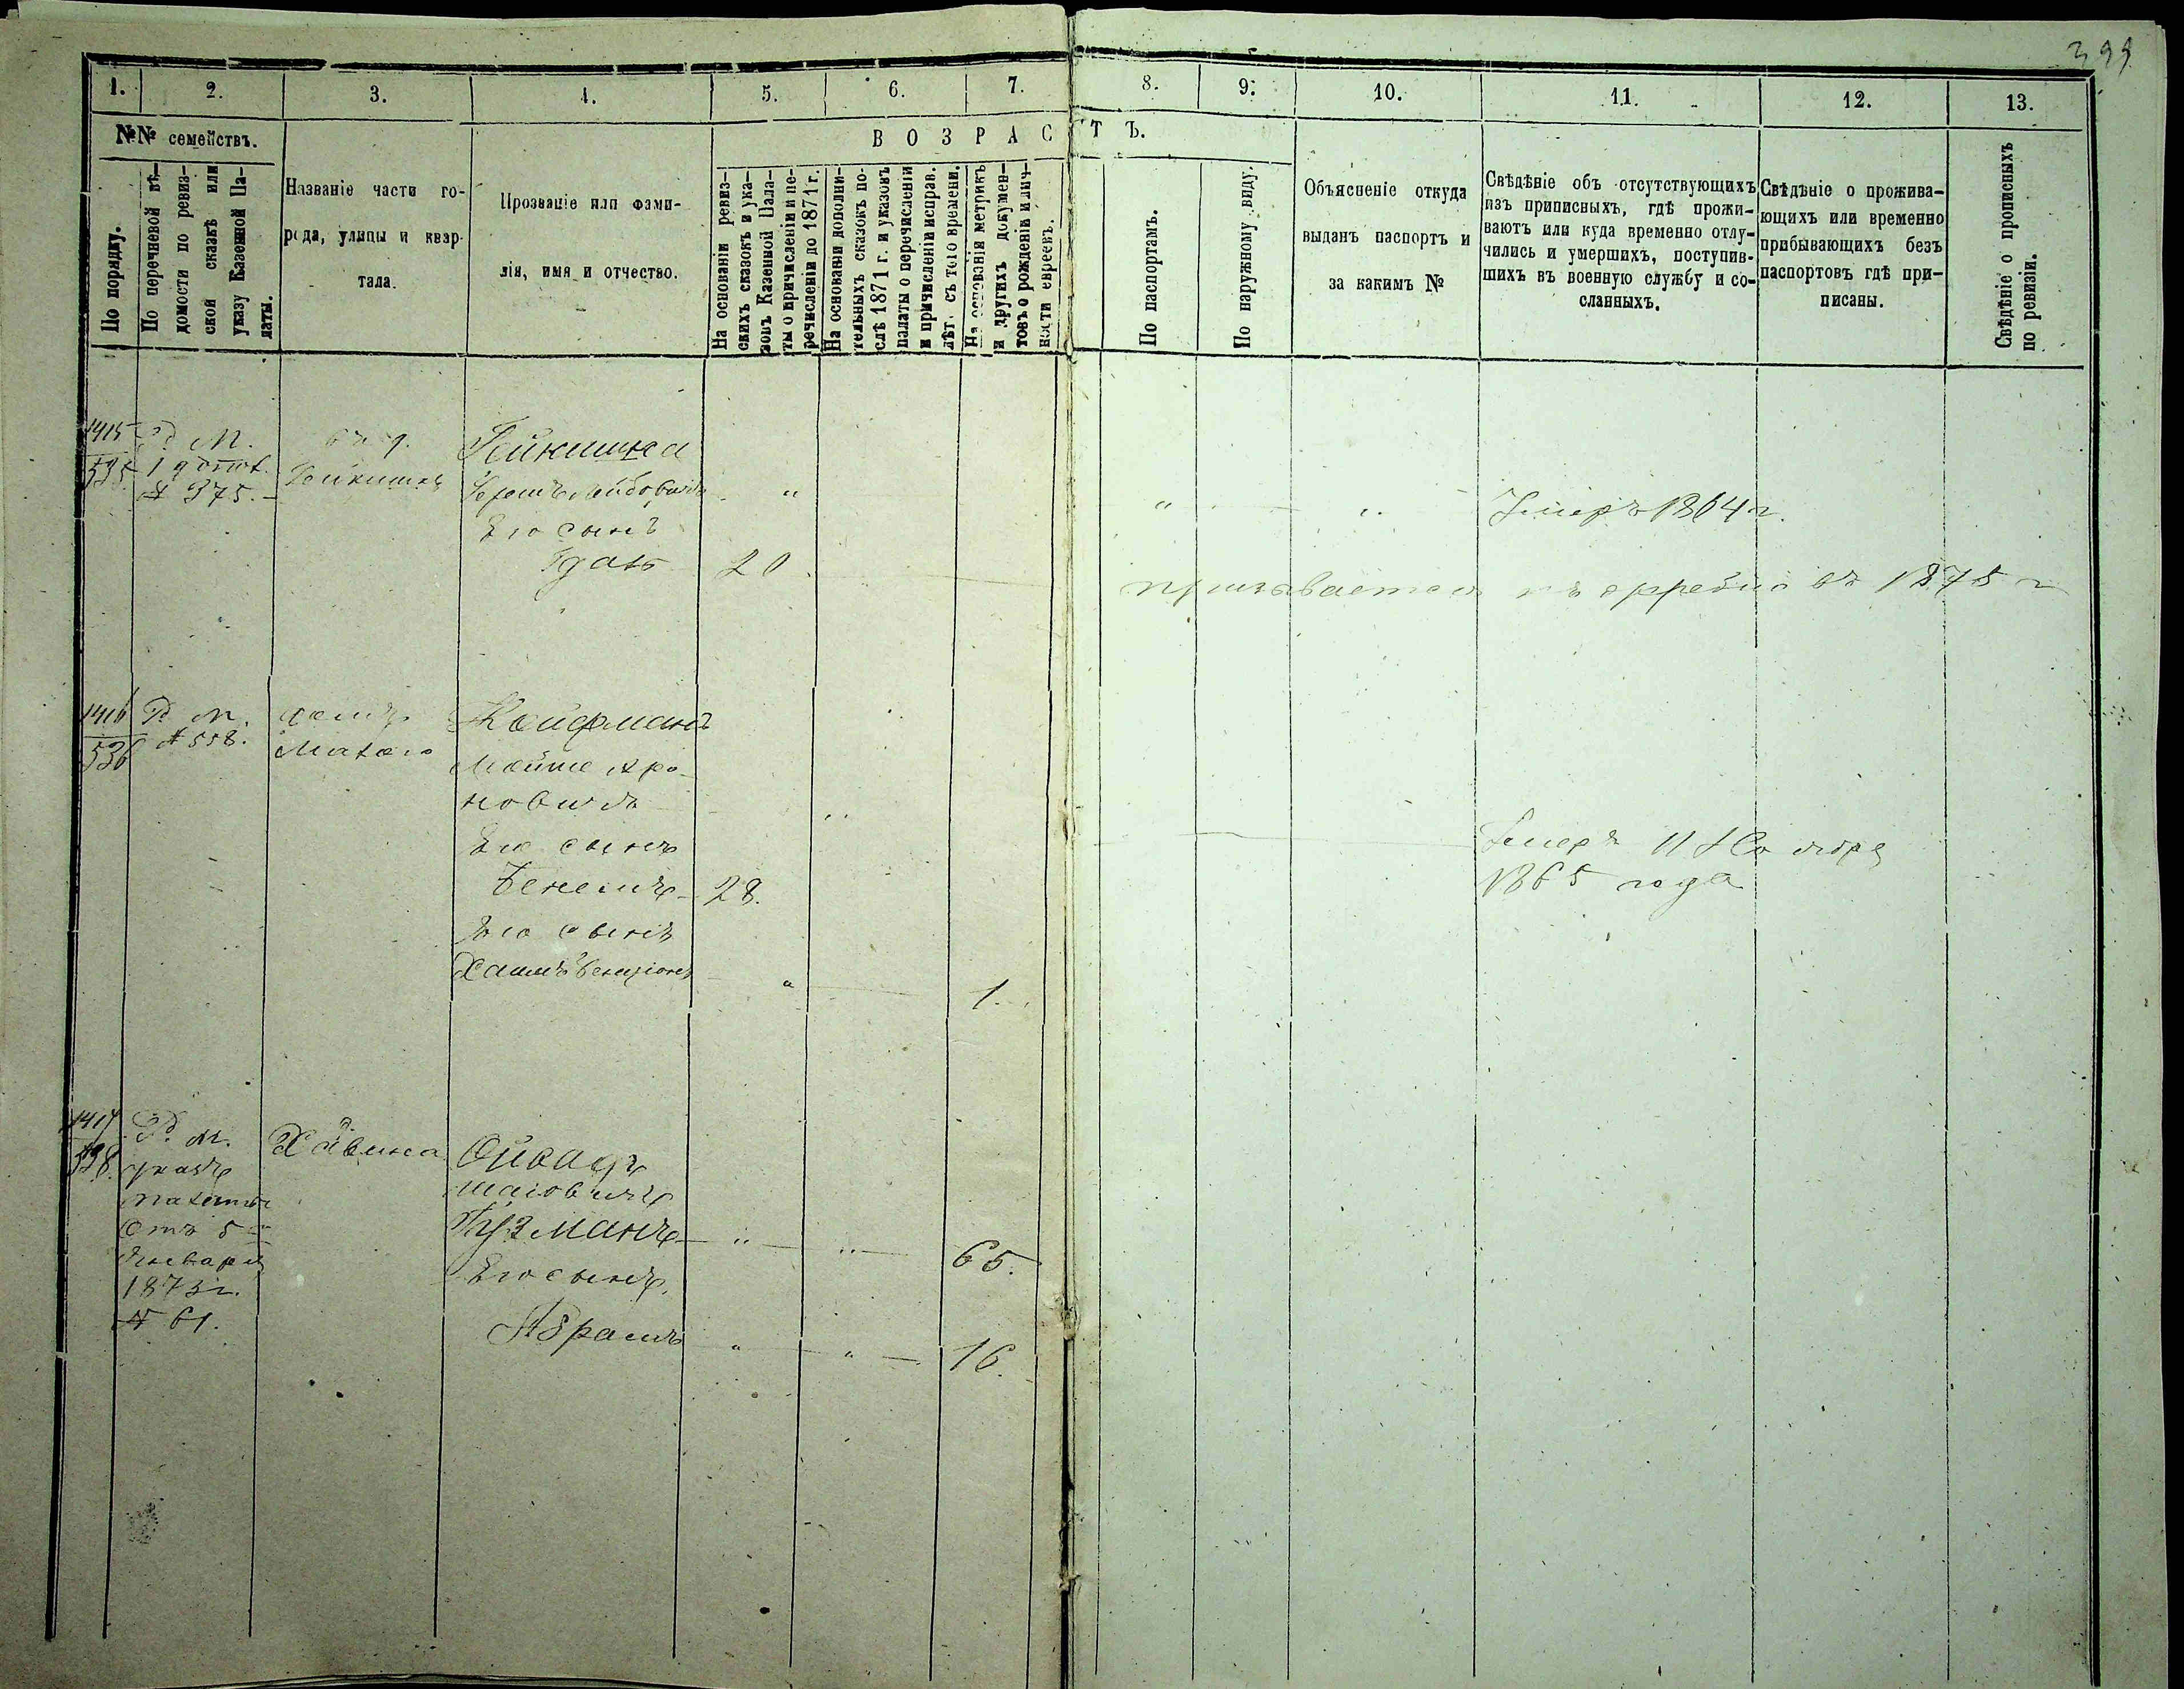 399
1. 2. 3. 4. 5. 6. 7. 8. 9. 10. 11. 12. 13.
№№ семействъ.
По порядку.
По перечневой вѣ-
домости по ревиз-
ской сказкѣ или
указу Казенной Па-
латы.
Названіе части го-
рода, улицы и квар-
тала.
Прозваніе или фами-
лія, имя и отчество.
ВОЗРАСТЪ.
На основаніи ревиз-
скихъ сказокъ и ука-
зовъ Казенной Пала-
ты о причисленіи и пе-
речисленіи до 1871 г.
На основаніи дополни-
тельныхъ сказокъ по-
слѣ 1871 г. и указовъ
палаты о перечисленіи
и причисленіи исправ.
лѣт. съ того времени.
На основаніи метрикъ
и другихъ докумен-
товъ о рожденіи и лич-
ности евреевъ.
По паспортамъ.
По наружному виду.
Объясненіе откуда
выданъ паспортъ и
за какимъ №
Свѣдѣніе объ отсутствующихъ
изъ приписныхъ, гдѣ прожи-
ваютъ или куда временно отлу-
чились и умершихъ, поступив-
шихъ въ военную службу и со-
сланныхъ.
Свѣдѣніе о прожива-
ющихъ или временно
прибывающихъ безъ
паспортовъ гдѣ при-
писаны.
Свѣдѣніе о прописныхъ
по ревизіи.
1415
535
Р. М.
№ 375.
Гейкишка
Гершъ Лейбовичъ " " "
Умеръ 1864 г.
Его сынъ
20
призывается къ жребію въ 1875 г
1416
536
Р. М.
№ 558.
домъ
Малаго
Койфманъ
Мойше Аро-
новичъ "
Умеръ 11
1865 года
Его сынъ
Бенешъ 28.
Его сынъ
Хаимъ Бенціонъ " 1.
1417
538.
Р. М.
указъ
палаты
Отъ 5
Января
1873 г.
№ 61.
д.
Хавина
Шаіовичъ
Гузманъ " " 65.
Его сынъ
Абрамъ " " 16.